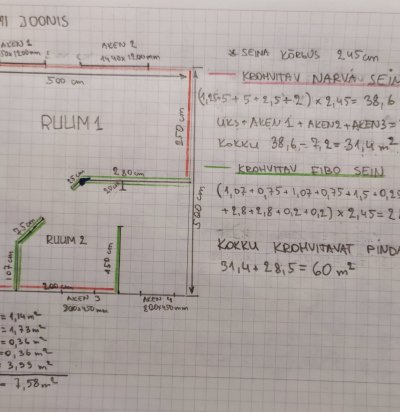 JOONIS
AKEN 1
AKEN 2
50x1200mm
1440x1200mm
500 cm
RUUM 1
250 cm
500 cm
25cm
280 cm
20cm
75cm
RUUM 2
107 cm
150 cm
200 cm
AKEN 3
800x450mm
AKEN 4
800x450mm
= 1,14m²
= 1,73m²
= 0,36m²
= 0,36 m²
= 3,99 m²
= 7,58m²
* SEINA KÕRGUS 245cm
KROHVITAV NARVA SEIN
(1,25+5+5+2,5+2) x 2,45 = 38,6
UKS+AKEN 1 + AKEN2+AKEN3=
KOKKU 38,6 - 7,2 = 31,4 m²
KROHVITAV FIBO SEIN
(1,07+0,75+1,07+0,75+1,5+0,25
+2,8+2,8+0,2+0,2) x 2,45=2
KOKKU KROHVITAVAT PINDA
31,4 + 28,5 = 60 m²